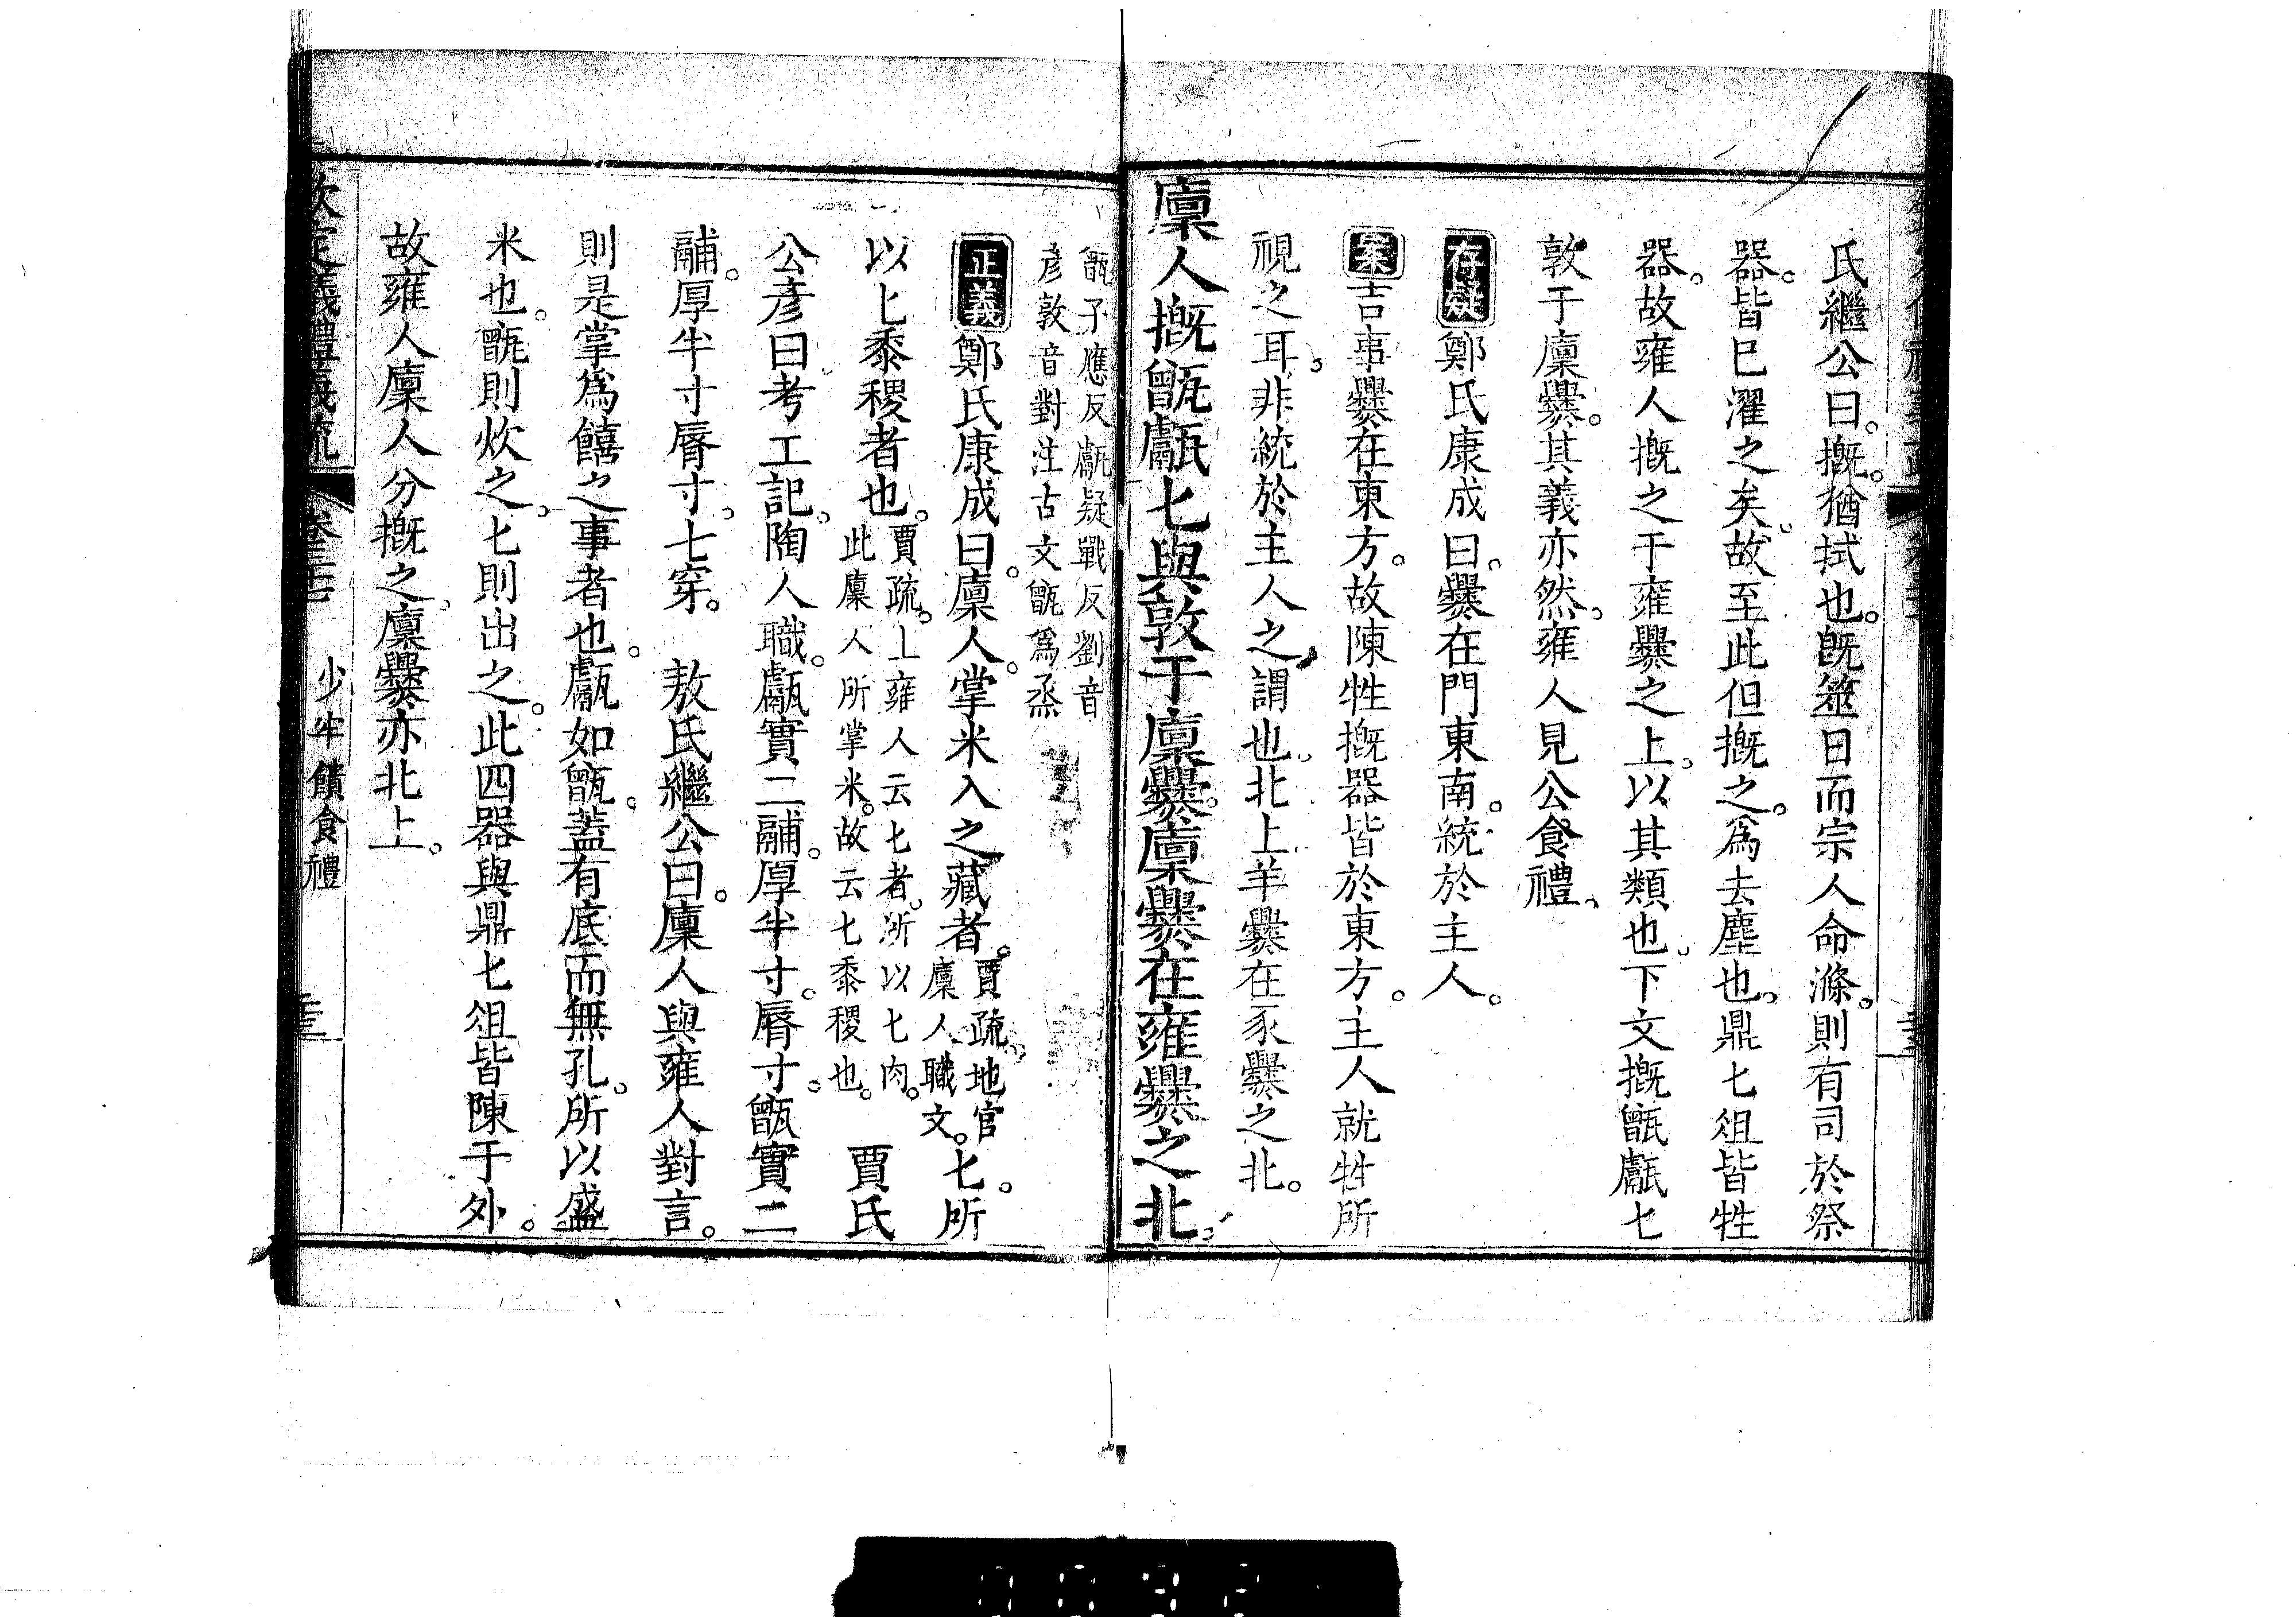 氏繼公曰。摡。猶拭也。旣筮日而宗人命滌。則有司於祭
器。皆已濯之矣。故至此但摡之。爲去塵也。鼎匕俎皆牲
器。故雍人摡之于雍爨之上。以其類也。下文摡甑甗匕
敦于廩爨。其義亦然。雍人見公食禮。
存疑鄭氏康成曰。爨在門東南。統於主人。
案吉事爨在東方。故陳牲摡器皆於東方。主人就牲所
視之耳。非統於主人之謂也。北上羊爨在豕爨之北。
廩人摡甑甗匕與敦于廩爨。廩爨在雍爨之北。
甑子應反甗疑戰反劉音
彥敦音對注古文甑爲烝
正義鄭氏康成曰。廩人。掌米入之藏者。賈疏。地官廩人職文。匕。所
以匕黍稷者也。賈疏。上雍人云匕者。所以匕肉。此廩人所掌米。故云匕黍稷也。 賈氏
公彥曰。考工記。陶人職。甗實二鬴。厚半寸。脣寸。甑實二
鬴。厚半寸脣寸。七穿。 敖氏繼公曰。廩人與雍人對言。
則是掌爲饎之事者也。甗如甑。蓋有底而無孔。所以盛
米也。甑則炊之。匕則出之。此四器與鼎匕俎皆陳于外。
故雍人廩人分摡之。廩爨亦北上。
欽定義禮義疏 卷三十七 少牢饋食禮